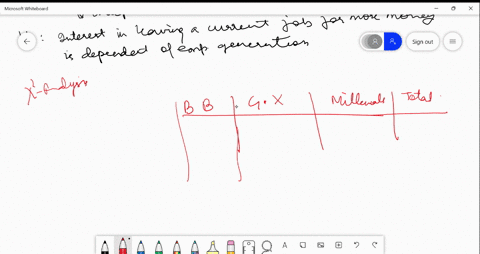 Microsoft Whiteboard
Sign out
Interest in having a current job for more money
is depended of emp generation
X²-Analysis
B B G.X Millenials Total